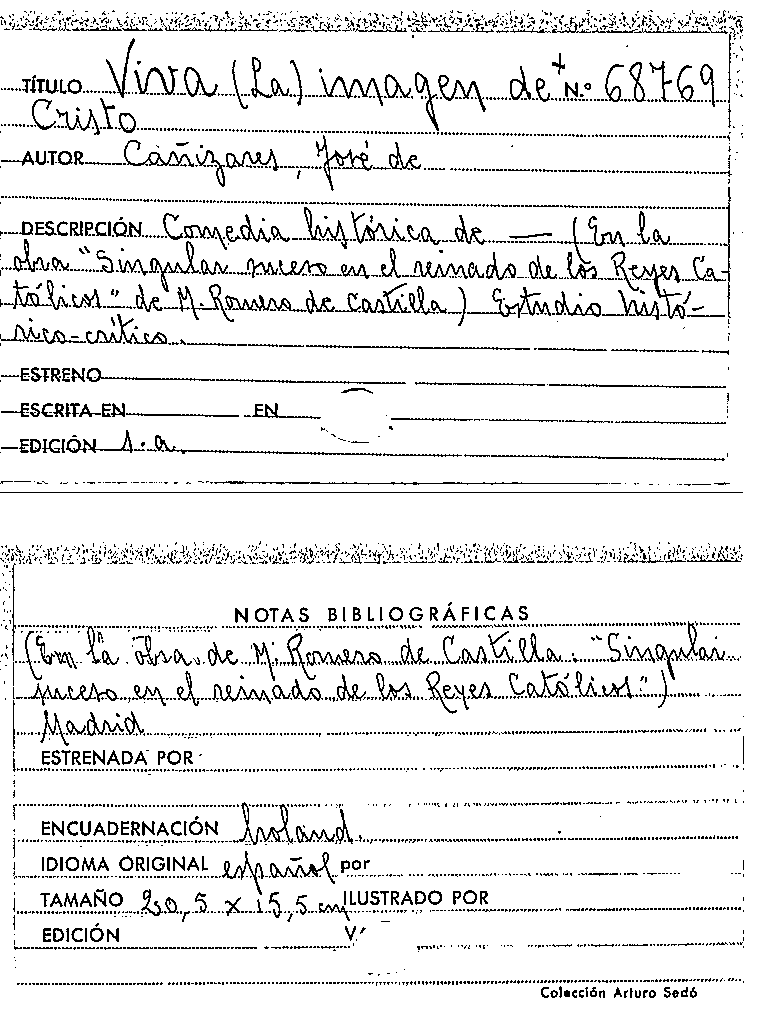 TÍTULO Viva (La) imagen de + N.º 68769
Cristo
AUTOR Cañizares, José de
DESCRIPCIÓN Comedia histórica de — (En la
obra "Singular suceso en el reinado de los Reyes Ca-
tólicos" de M. Romero de Castilla) Estudio histó-
rico-crítico.
ESTRENO
ESCRITA EN EN
EDICIÓN s.a.
NOTAS BIBLIOGRÁFICAS
(En la obra de M. Romero de Castilla: "Singular
suceso en el reinado de los Reyes Católicos")
Madrid
ESTRENADA POR
ENCUADERNACIÓN holand.
IDIOMA ORIGINAL español por
TAMAÑO 20,5 x 15,5 cm ILUSTRADO POR
EDICIÓN
Colección Arturo Sedó